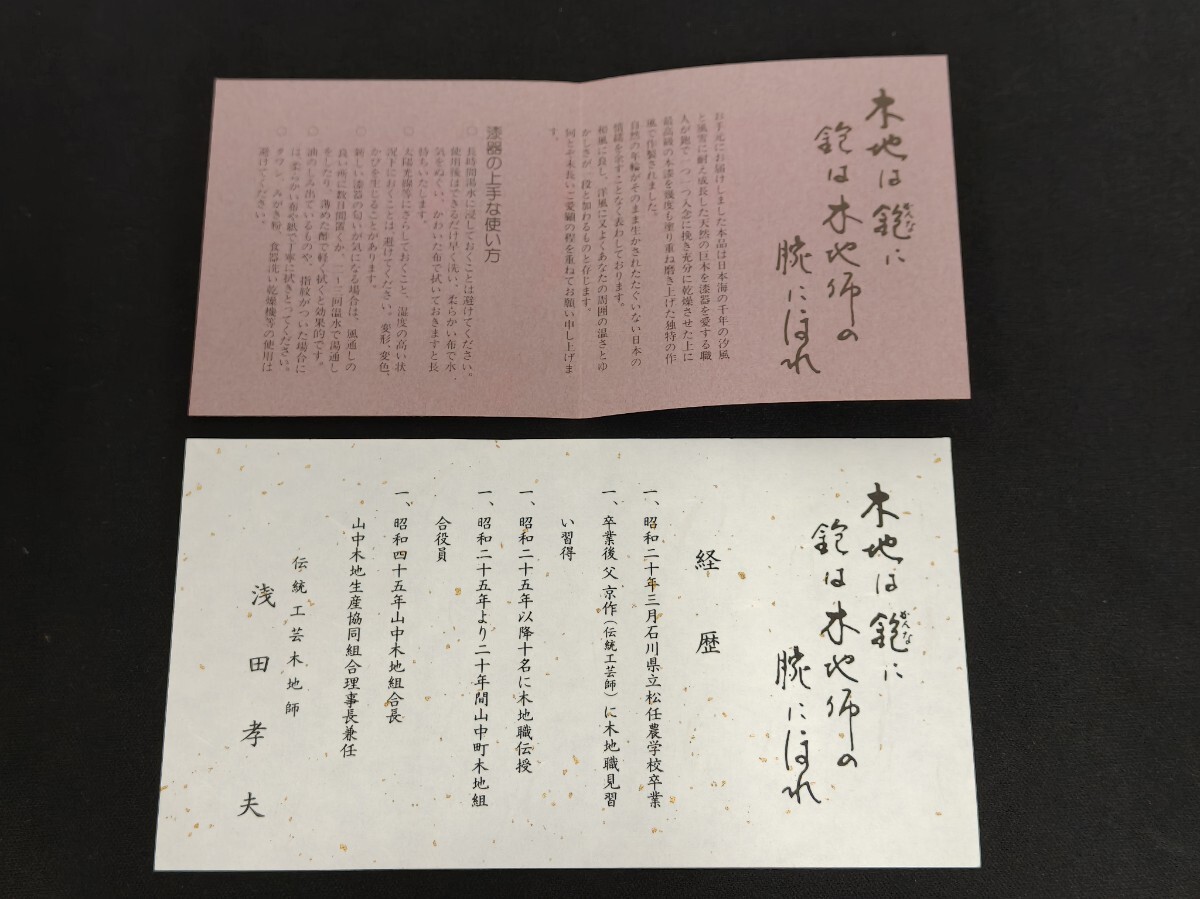 木地は鉋に
かんな
鉋は木地師の
腕にほれ
お手元にお届けしました本品は日本海の千年の汐風
と風雪に耐え成長した天然の巨木を漆器を愛する職
人が鉋で一つ一つ入念に挽き充分に乾燥させた上に
最高級の本漆を幾度も塗り重ね磨き上げた独特の作
風で作製されました。
自然の年輪がそのまま生かされたたぐいない日本の
情緒を余すことなく表わしております。
和風に良し、洋風に又よくあなたの周囲の温さとゆ
かしさが一段と加わるものと存じます。
何とぞ末長いご愛顧の程を重ねてお願い申し上げま
す。
漆器の上手な使い方
○ 長時間湯水に浸しておくことは避けてください。
使用後はできるだけ早く洗い、柔らかい布で水
気をぬぐい、かわいた布で拭いておきますと長
持ちいたします。
○ 太陽光線等にさらしておくこと、湿度の高い状
況下におくことは、避けてください。変形、変色、
かびを生じることがあります。
○ 新しい漆器の匂いが気になる場合は、風通しの
良い所に数日間置くか、二〜三回温水で湯通し
をしたり、薄めた酢で軽く拭くと効果的です。
○ 油のしみ出ているものや、指紋がついた場合に
は、柔らかい布や紙で丁寧に拭きとってください。
○ タワシ、みがき粉、食器洗い乾燥機等の使用は
避けてください。
木地は鉋に
かんな
鉋は木地師の
腕にほれ
経歴
一、昭和二十年三月石川県立松任農学校卒業
一、卒業後父京作(伝統工芸師)に木地職見習
い習得
一、昭和二十五年以降十名に木地職伝授
一、昭和二十五年より二十年間山中町木地組
合役員
一、昭和四十五年山中木地組合長
山中木地生産協同組合理事長兼任
伝統工芸木地師
浅田孝夫